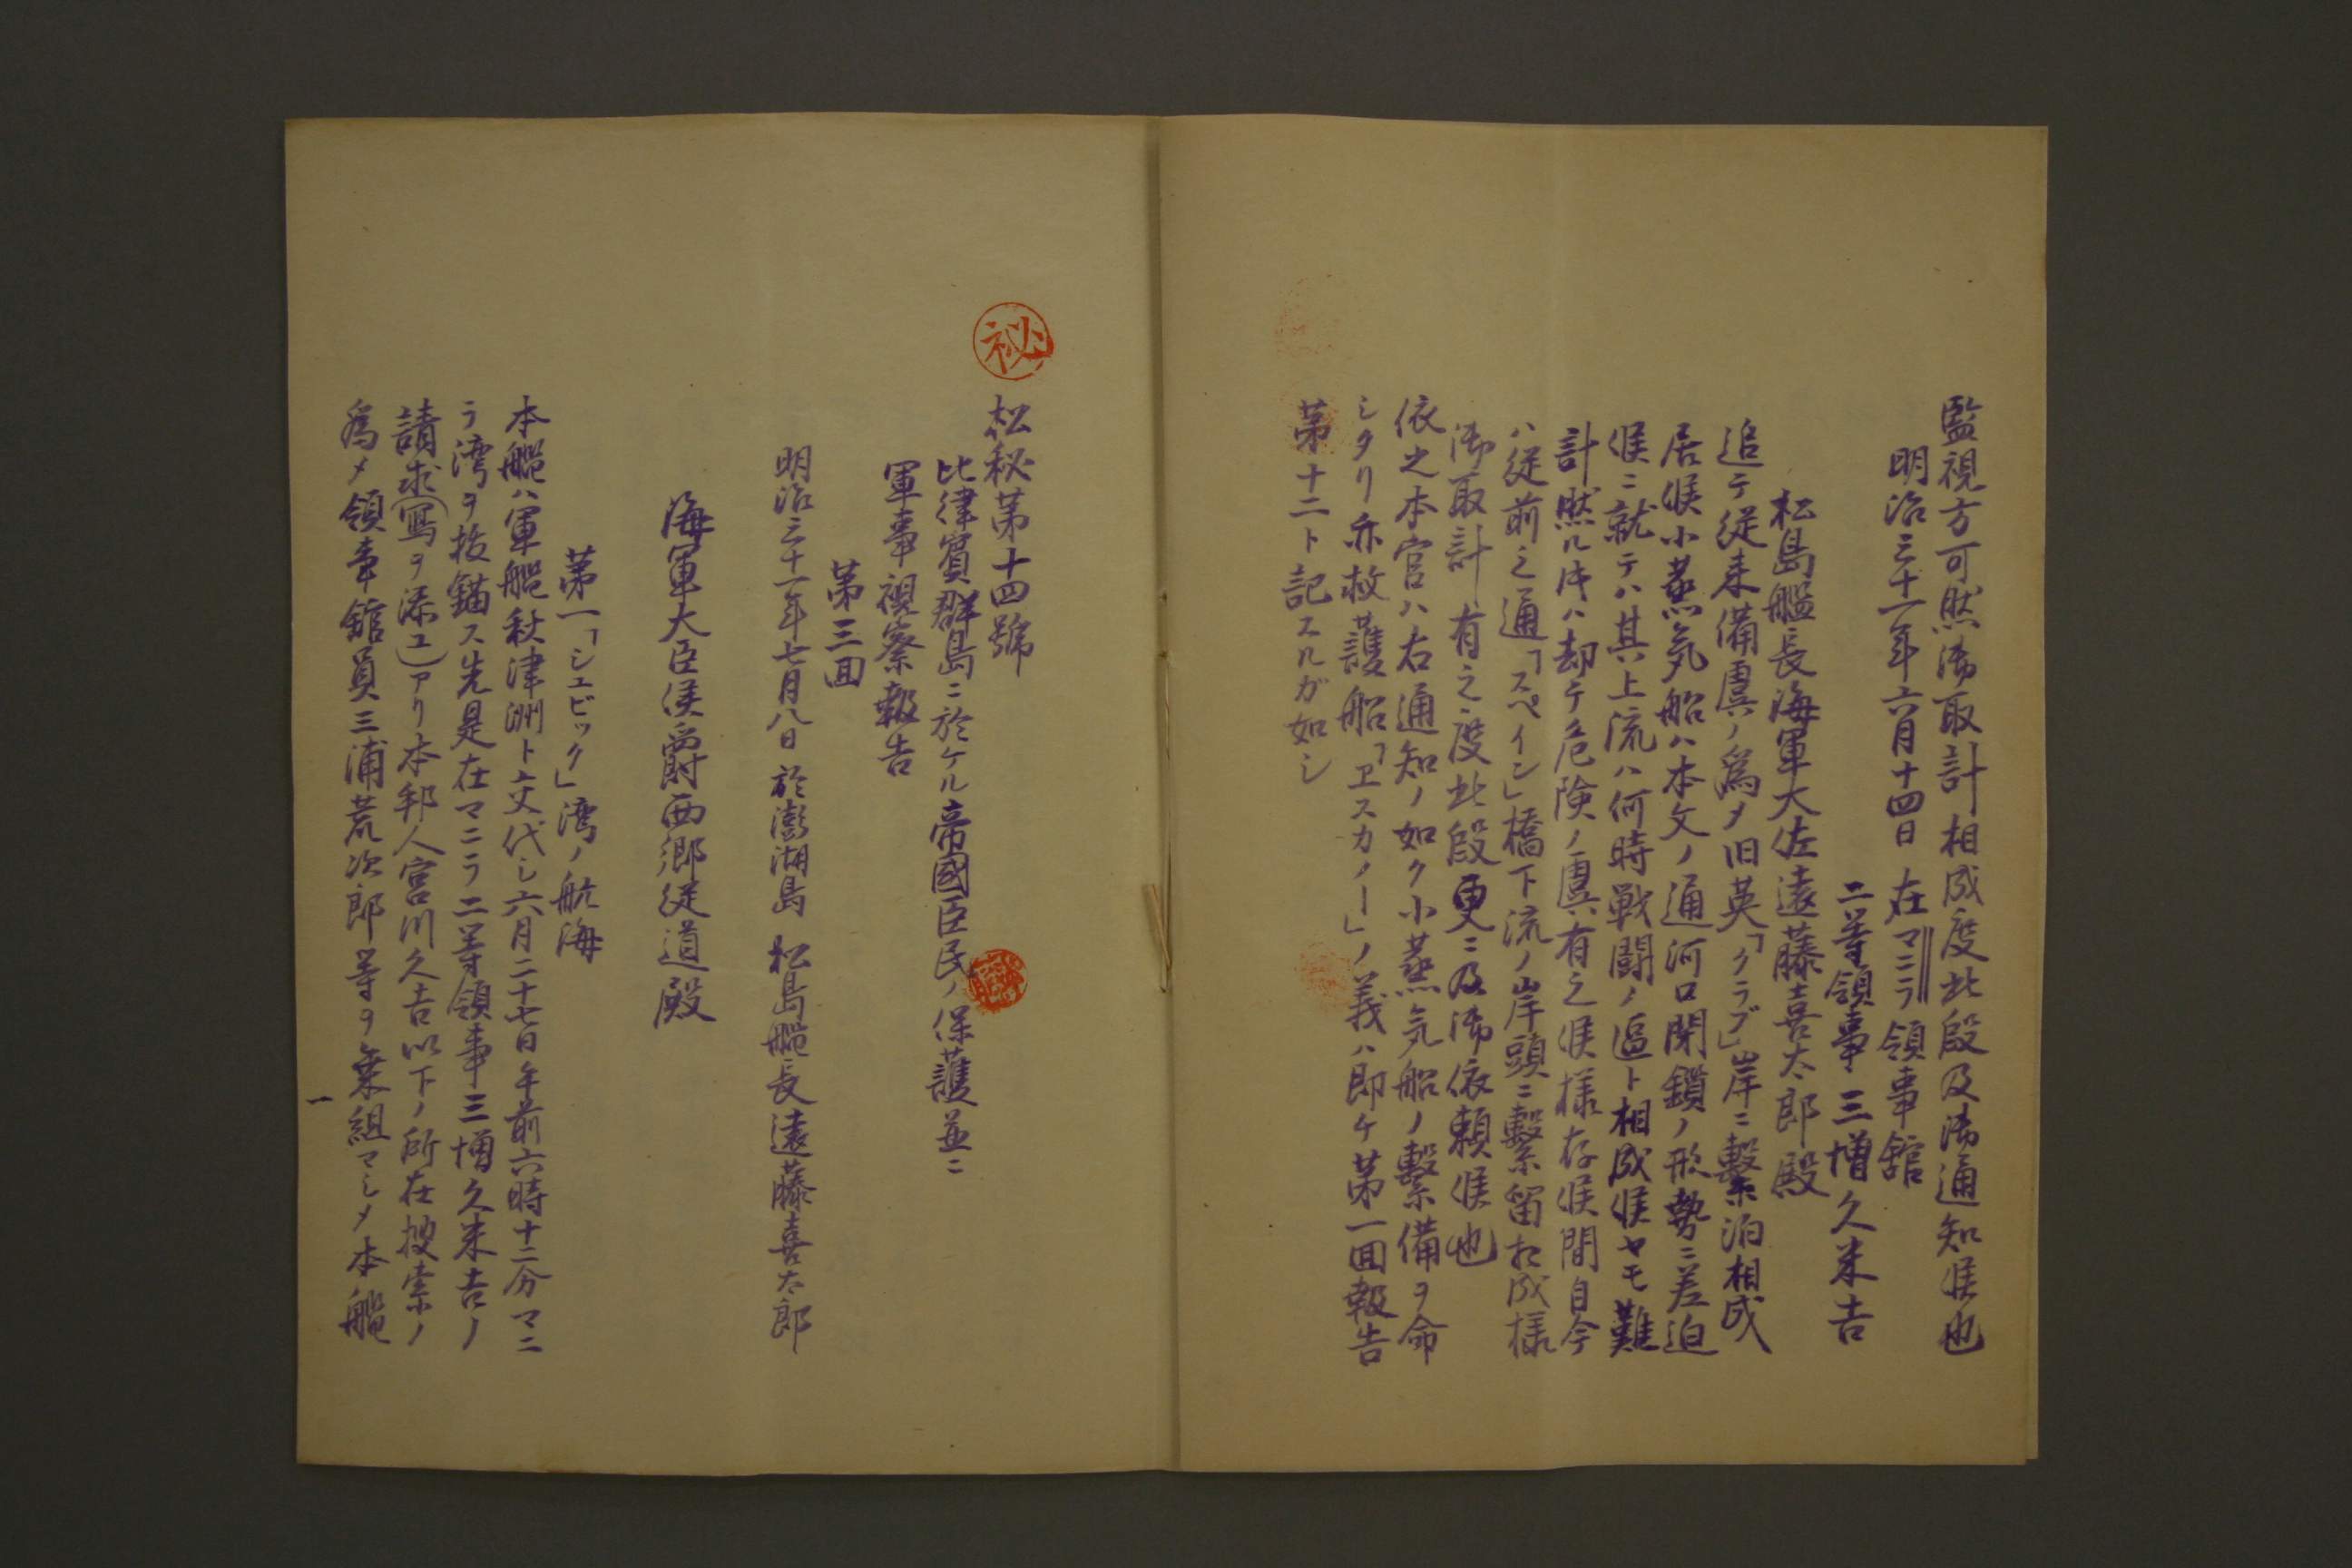 監視方可然御取計相成度此段及御通知候也
明治三十一年六月十四日 在マニラ領事舘
二等領事 三増久米吉
松島艦長海軍大佐遠藤喜太郎殿
追テ従来備虞ノ為メ旧英「クラブ」岸ニ繋泊相成
居候小蒸気船ハ本文ノ通河口閉鎖ノ形勢ニ差迫
候ニ就テハ其上流ハ何時戦闘ノ區ト相成候ヤモ難
計然ル時ハ却テ危険ノ虞有之候様存候間自今
ハ従前之通「スペイン」橋下流ノ岸頭ニ繋留相成様
御取計有之度此段更ニ及御依頼候也
依之本官ハ右通知ノ如ク小蒸気船ノ繋備ヲ命
シタリ亦救護船「ヱスカノー」ノ義ハ即ケ第一回報告
第十二ト記スルガ如シ
秘
松秘第十四號
比律賓群島ニ於ケル帝國臣民ノ保護並ニ
軍事視察報告
第三回
明治三十一年七月八日 於澎湖島 松島艦長遠藤喜太郎
海軍大臣侯爵西郷従道殿
第一「シュビック」湾ノ航海
本艦ハ軍艦秋津洲ト交代シ六月二十七日午前六時十二分マニ
ラ湾ヲ抜錨ス先是在マニラ二等領事三増久米吉ノ
請求(寫ヲ添ユ)アリ本邦人宮川久吉以下ノ所在捜索ノ
為メ領事舘員三浦荒次郎等ヲ乗組マシメ本艦
一